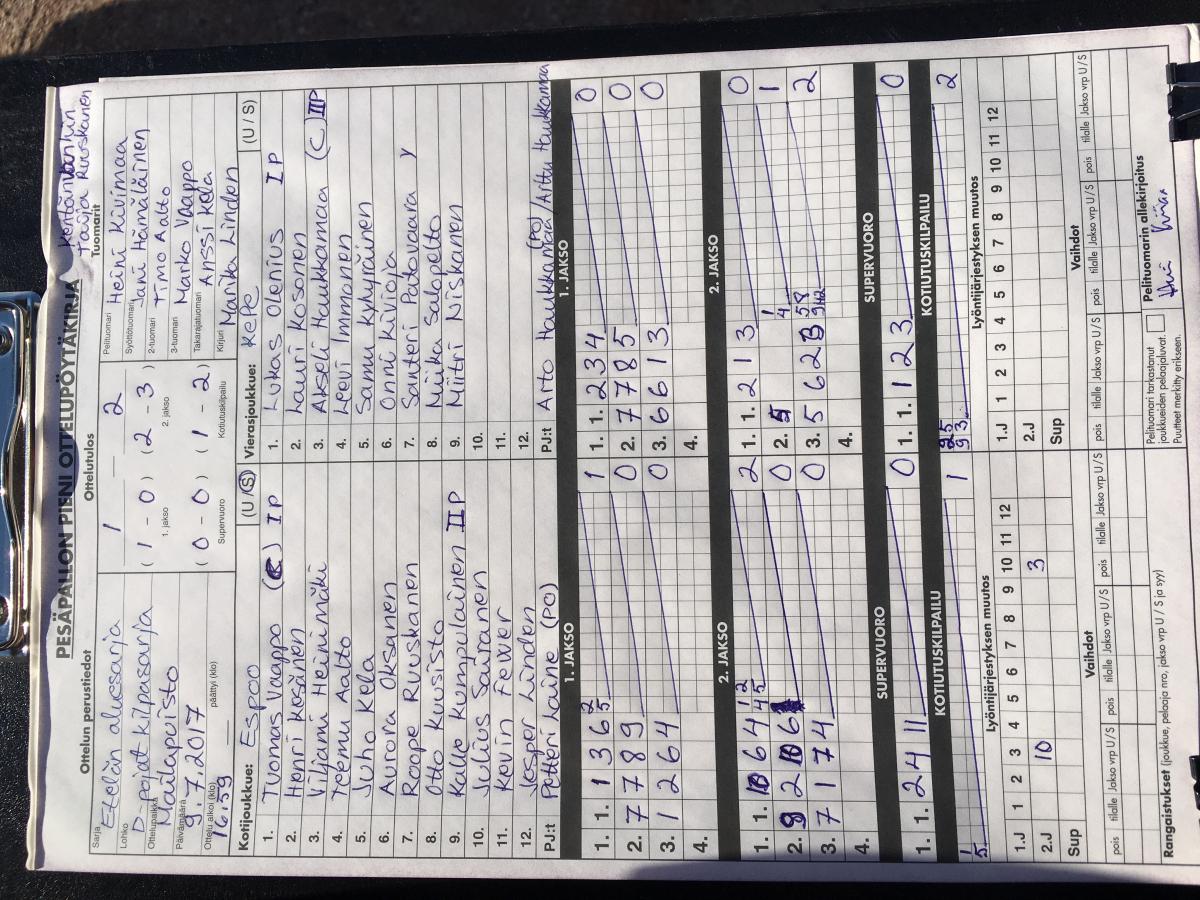 PESÄPALLON PIENI OTTELUPÖYTÄKIRJA
Kentänvanhin
Tarja Ruuskanen
Ottelun perustiedot
Ottelutulos
Tuomarit
Sarja
Etelän aluesarja
Lohko
D-pojat kilpasarja
Ottelupaikka
Mailapuisto
Päivämäärä
9.7.2017
Ottelu alkoi (klo)
16:59
päättyi (klo)
1 2
(1 - 0) (2 - 3)
1. jakso 2. jakso
(0 - 0) (1 - 2)
Supervuoro Kotiutuskilpailu
Pelituomari Heini Kivimaa
Syöttötuomari Jani Hämäläinen
2-tuomari Timo Aalto
3-tuomari Marko Vaappo
Takarajatuomari Anssi Kela
Kirjuri Marika Linden
Kotijoukkue: Espoo (U / S)
1. Tuomas Vaappo (C) I P
2. Henri Kesänen
3. Viljami Heininmäki
4. Teemu Aalto
5. Juho Kela
6. Aurora Oksanen
7. Roope Ruuskanen
8. Otto Kuusisto
9. Kalle Kumpulainen II P
10. Julius Saaranen
11. Kevin Fewer
12. Jesper Linden
PJ:t Petteri Laine (PO)
Vierasjoukkue: KePe (U / S)
1. Lukas Olenius I P
2. Lauri Kosonen
3. Akseli Haukkamaa (C) II P
4. Leevi Immonen
5. Samu Kyhyräinen
6. Onni Kivioja
7. Santeri Patovaara Y
8. Miika Salopelto
9. Miitri Niskanen
10.
11.
12.
PJ:t Arto Haukkamaa (PO) / Arttu Haukkamaa
1. JAKSO
1. 1. 1 3 6 2 5 1
2. 7 7 8 9 0
3. 1 2 6 4 0
4.
1. JAKSO
1. 1. 2 3 4 0
2. 7 7 8 5 0
3. 6 6 1 3 0
4.
2. JAKSO
1. 1. 10 6 4 1 2 4 5 2
2. 9 2 10 6 0
3. 7 1 7 4 0
4.
2. JAKSO
1. 1. 2 1 3 0
2. 5 1 4 1
3. 5 6 2 3 2
4.
SUPERVUORO
1. 1. 2 4 11 0
SUPERVUORO
1. 1. 1 2 3 0
KOTIUTUSKILPAILU
1
5
1
KOTIUTUSKILPAILU
2
Lyöntijärjestyksen muutos
1 2 3 4 5 6 7 8 9 10 11 12
1.J
2.J 10 3
Sup
Lyöntijärjestyksen muutos
1 2 3 4 5 6 7 8 9 10 11 12
1.J
2.J
Sup
Vaihdot
pois tilalle Jakso vrp U / S pois tilalle Jakso vrp U / S pois tilalle Jakso vrp U / S
Vaihdot
pois tilalle Jakso vrp U / S pois tilalle Jakso vrp U / S pois tilalle Jakso vrp U / S
Rangaistukset (joukkue, pelaaja nro, jakso vrp U / S ja syy)
Pelituomari tarkastanut
joukkueiden pelaajaluvat.
Puutteet merkitty erikseen.
Pelituomarin allekirjoitus